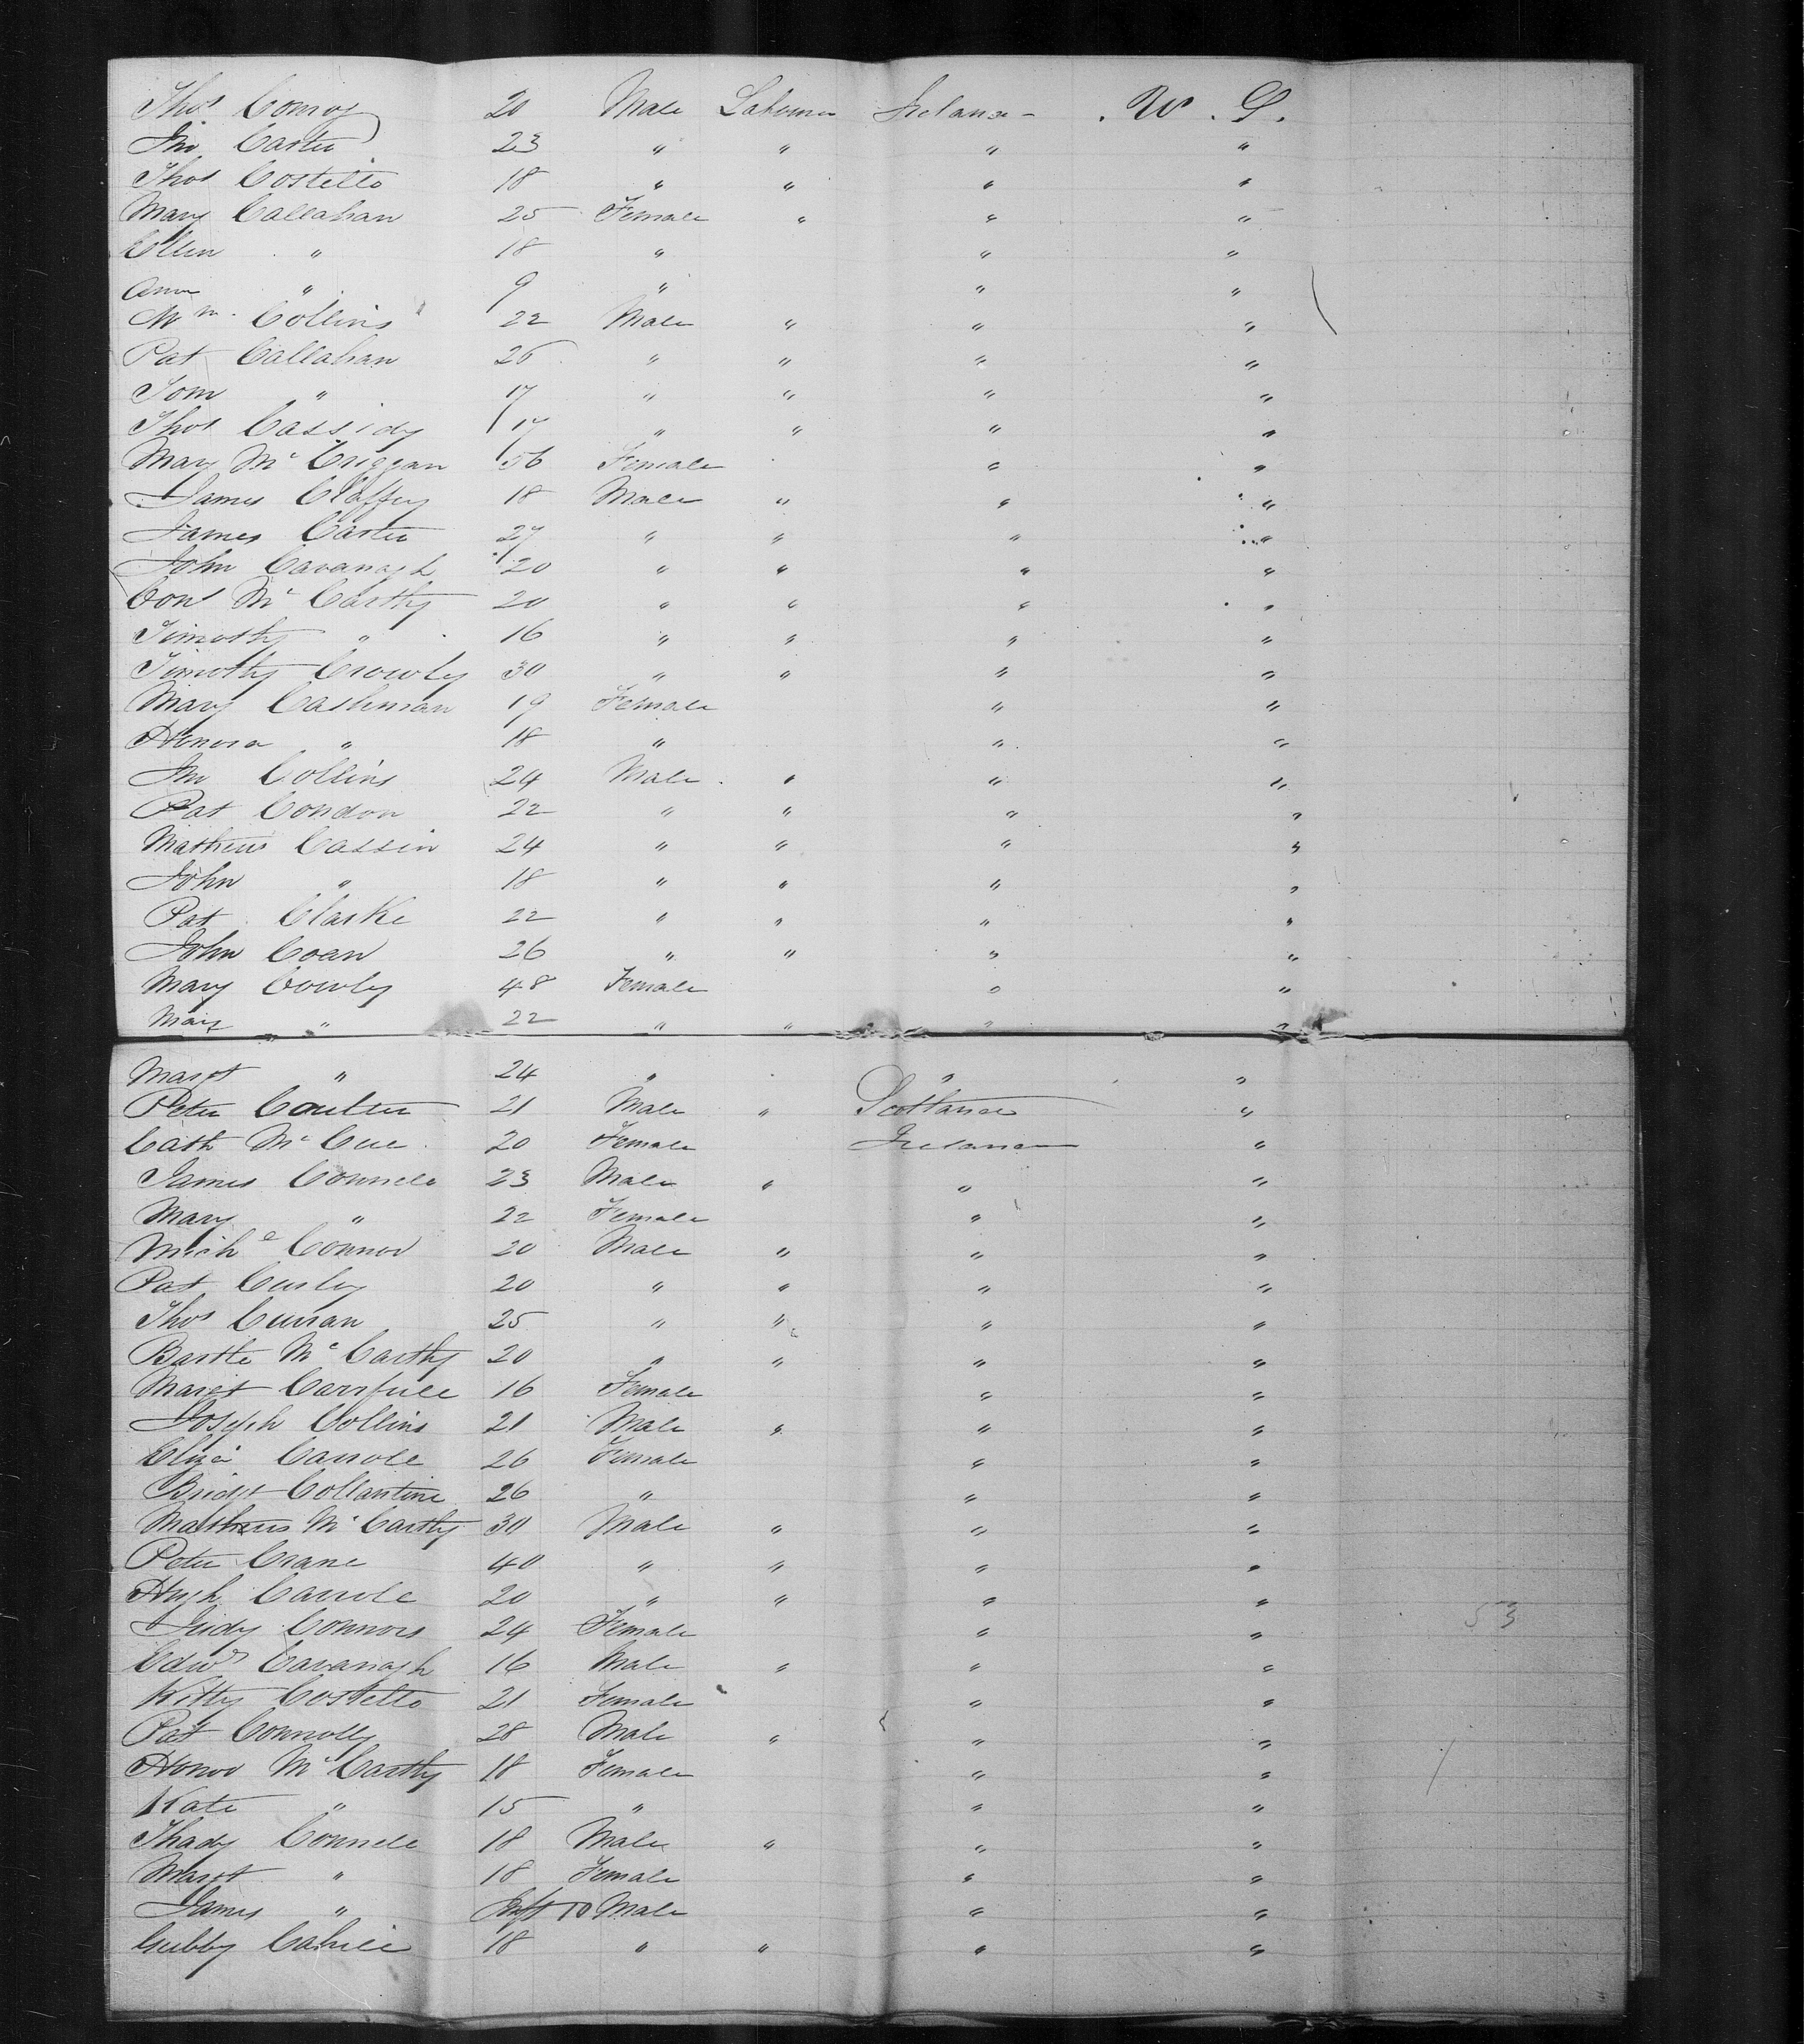 Thos Conroy 20 Male Labourer Ireland . U . S .
Jno Carter 23 " " " "
Thos Costello 18 " " " "
Mary Callahan 25 Female " " "
Ellen " 18 " " "
Ann " 9 " " "
Wm Collins 22 Male " " "
Pat Callahan 26 " " " "
Tom " 17 " " " "
Thos Cassidy 17 " " " "
Mary Mc Criggan 56 Female " "
James Claffey 18 Male " " "
James Carter 27 " " " "
John Cavanagh 20 " " " "
Con Mc Carthy 20 " " " "
Timothy " 16 " " " "
Timothy Crowly 30 " " " "
Mary Cashman 19 Female " "
Honora " 18 " " "
Jno Collins 24 Male " " "
Pat Condon 22 " " " "
Mathew Cassin 24 " " " "
John " 18 " " " "
Pat Clarke 22 " " " "
John Coan 26 " " " "
Mary Cowly 48 Female " "
Mary " 22 " " " "
Margt " 24 " " "
Peter Coulter 21 Male " Scotland "
Cath Mc Cue 20 Female Ireland "
James Connell 23 Male " " "
Mary " 22 Female " "
Michl Connor 20 Male " " "
Pat Curley 20 " " " "
Thos Curran 25 " " " "
Bartle Mc Carthy 20 " " " "
Margt Carrfull 16 Female " "
Joseph Collins 21 Male " " "
Eliza Carroll 26 Female " "
Bridgt Collantine 26 " " "
Mathew Mc Carthy 30 Male " " "
Peter Crane 40 " " " "
Hugh Carroll 20 " " " "
Judy Connors 24 Female " " 53
Edwd Cavanagh 16 Male " " "
Kitty Costello 21 Female " "
Pat Connolly 28 Male " " "
Honor Mc Carthy 18 Female " "
Kate " 15 " " "
Thady Connell 18 Male " " "
Margt " 18 Female " "
James " Inft 10 Male " "
Cubby Cahill 18 " " " "